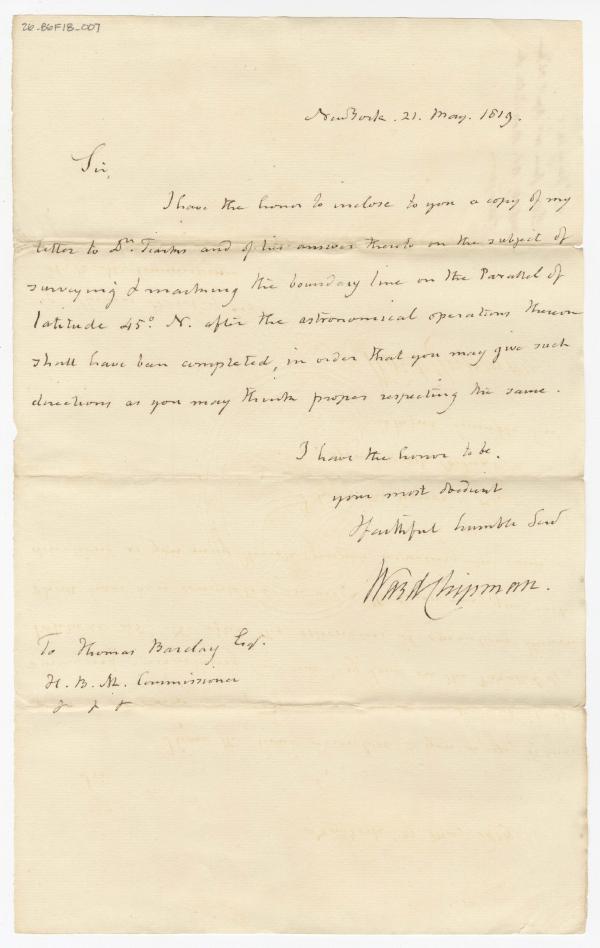 26-B6F18-007
New York. 21. May. 1819.
Sir,
I have the honor to inclose to you a copy of my
letter to Dr. Tiarks and of his answer thereto on the subject of
surveying & marking the boundary line on the Parallel of
latitude 45° N. after the astronomical operations thereon
shall have been completed, in order that you may give such
directions as you may think proper respecting the same.
I have the honor to be.
your most obedient
& faithful humble Servt
Ward Chipman.
To Thomas Barclay Esqr.
H. B. M. Commissioner
& & &